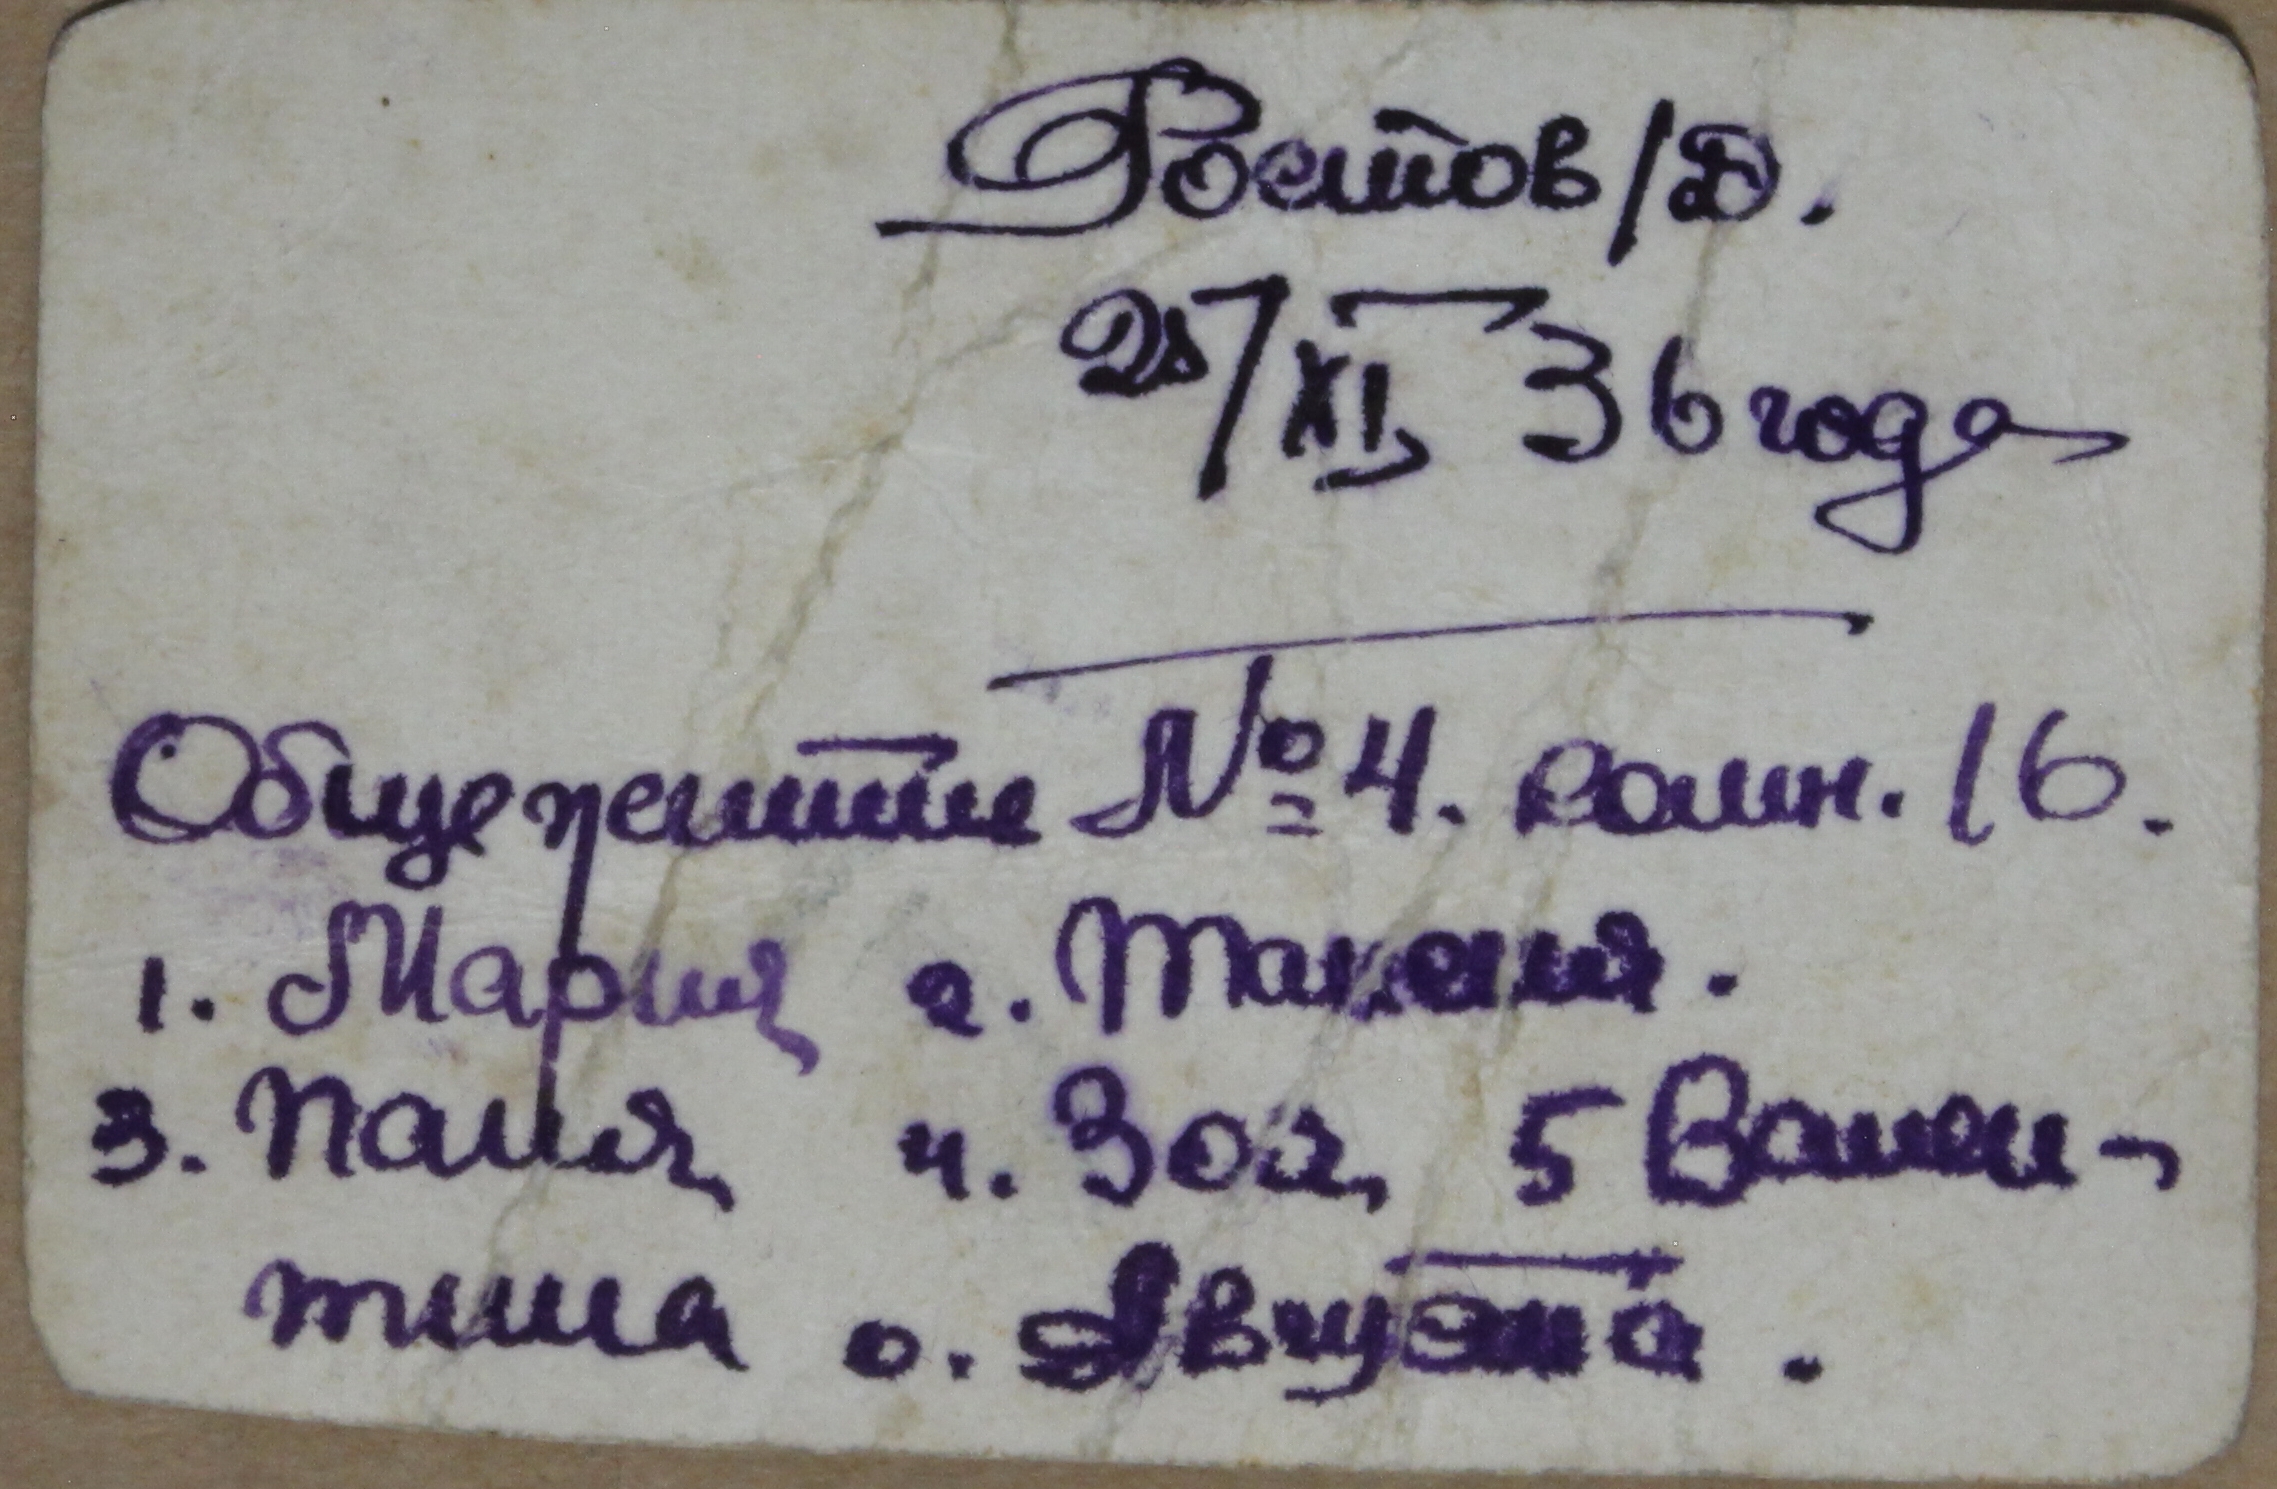 Ростов/Д.
25/XI 36 года
Общежитие № 4. комн. 16.
1. Мария 2. Таисия.
3. Паня, 4. Зоя, 5 Вален-
тина 6. Августа.